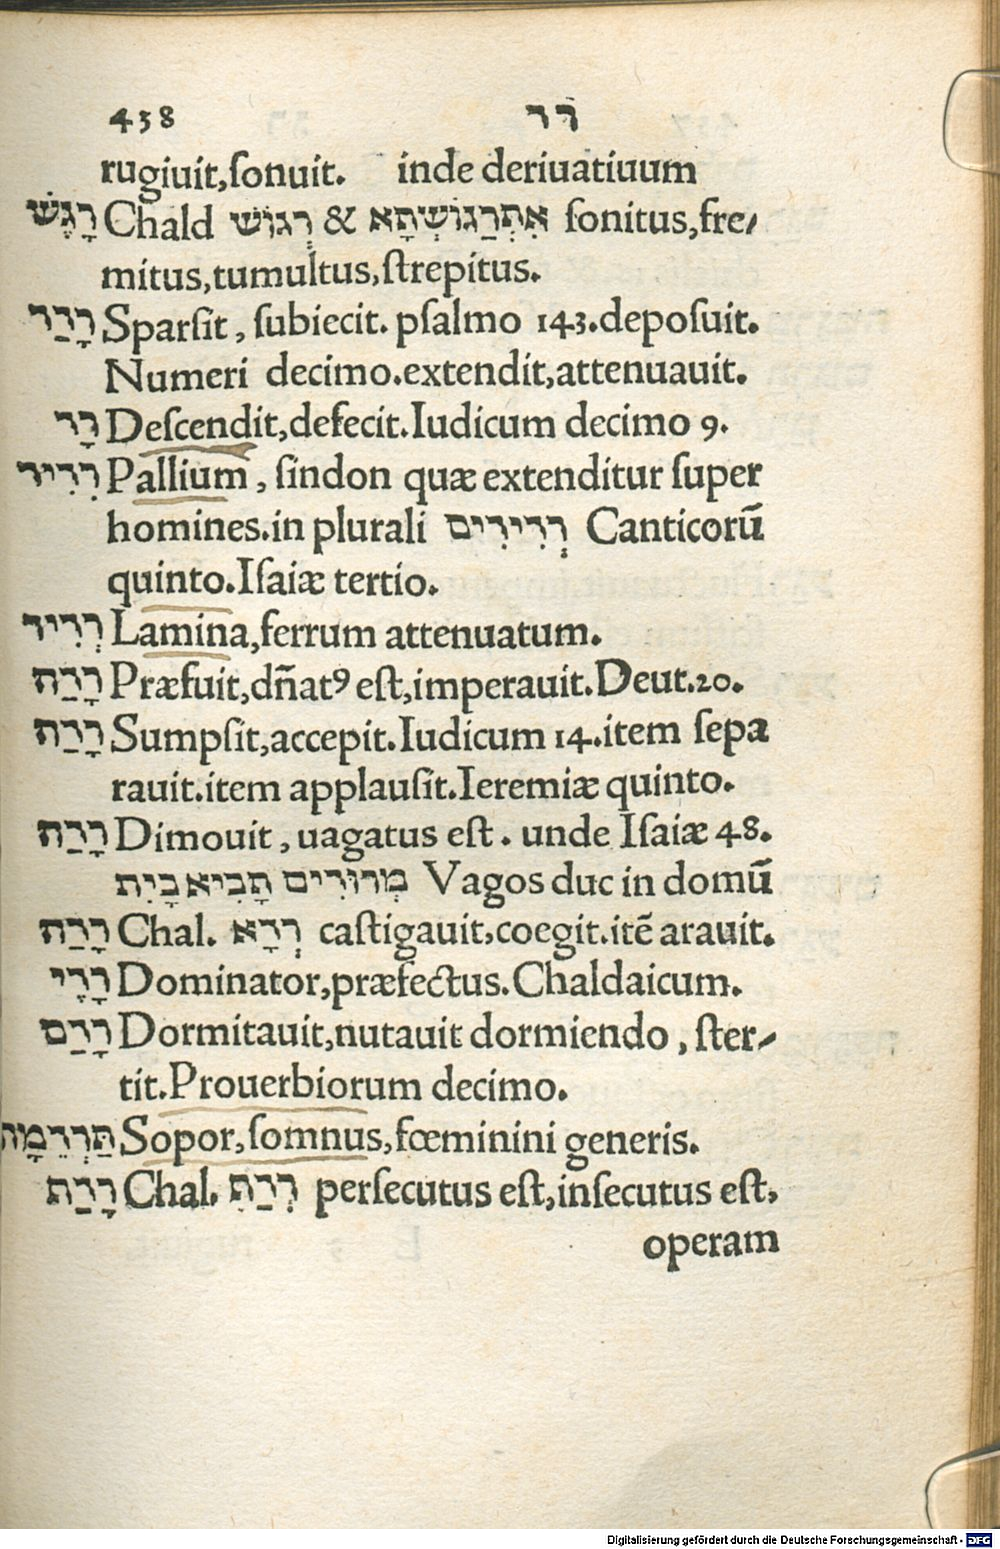 438 רד
rugiuit,ſonuit. inde deriuatiuum
רָגַשׁ Chald רְגוֹשׁ & אִתְרַגוֹשְׁתָא ſonitus,fre⸗
mitus,tumultus,ſtrepitus.
רָדַד Sparſit, ſubiecit. pſalmo 143.depoſuit.
Numeri decimo.extendit,attenuauit.
רָד Deſcendit,defecit.Iudicum decimo 9.
רְדִיד Pallium, ſindon quæ extenditur ſuper
homines.in plurali רְדִידִים Canticorũ
quinto.Iſaiæ tertio.
רְדִיד Lamina,ferrum attenuatum.
רָדָה Præfuit,dñatꝰ eſt,imperauit.Deut.20.
רָדָה Sumpſit,accepit.Iudicum 14.item ſepa
rauit.item applauſit.Ieremiæ quinto.
רָדָה Dimouit, uagatus eſt. unde Iſaiæ 48.
מְרוּדִים תָבִיא בָיִת Vagos duc in domũ
רָדָה Chal. רְדָא caſtigauit,coegit.itẽ arauit.
רָדֶי Dominator,præfectus.Chaldaicum.
רָדַם Dormitauit,nutauit dormiendo, ſter⸗
tit.Prouerbiorum decimo.
תַּרְדֵמָה Sopor,ſomnus,fœminini generis.
רָדַף Chal. רְדַף perſecutus eſt,inſecutus eſt,
operam
Digitalisierung gefördert durch die Deutsche Forschungsgemeinschaft - DFG